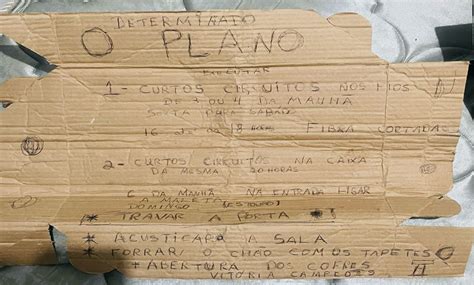 DETERMINADO
O PLANO
EXECUTAR
1- CURTOS CIRCUITOS NOS FIOS
DE 3 OU 4 DA MANHÃ
SEXTA PARA SABADO
16 18 FIBRA CORTADA
2- CURTOS CIRCUITOS NA CAIXA
DA MESMA HORAS
6 DA MANHÃ NA ENTRADA LIGAR
A MALETA
DOMINGO
* TRAVAR A PORTA *!
* ACUSTICAR A SALA
* FORRAR O CHÃO COM OS TAPETES
+ ABERTURA DOS COFRES
VITÓRIA CAMPEÕES